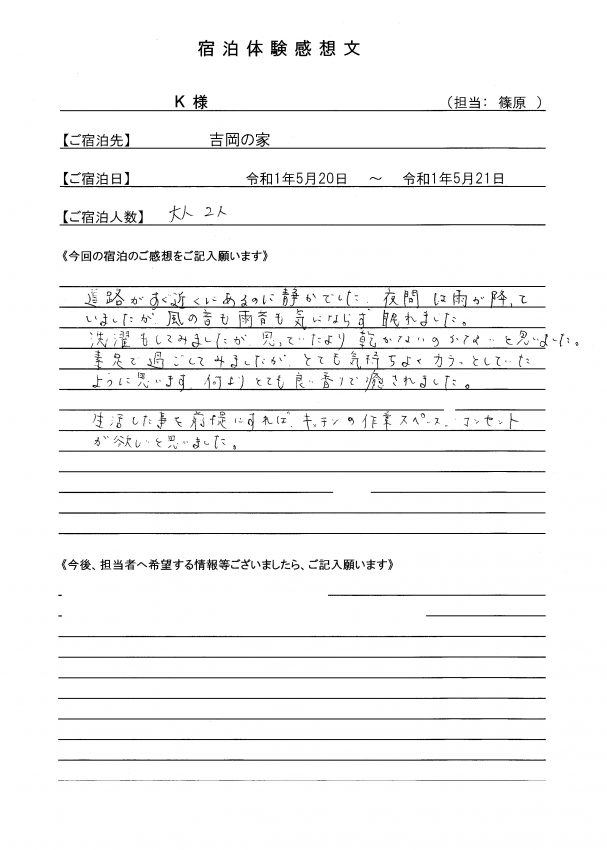 宿泊体験感想文
K 様 （担当： 篠原 ）
【ご宿泊先】 吉岡の家
【ご宿泊日】 令和1年5月20日 ～ 令和1年5月21日
【ご宿泊人数】 大人 2人
《今回の宿泊のご感想をご記入願います》
道路がすぐ近くにあるのに静かでした。夜間は雨が降って
いましたが、風の音も雨音も気にならず眠れました。
洗濯もしてみましたが、思っていたより乾かないのかな
いと思いました。
素足で過ごしてみましたが、とても気持ちよくカラッとしていた
ように思います。何よりとても良い香りで癒されました。
生活した事を前提にすれば、キッチンの作業スペース、コンセント
が欲しいと思いました。
《今後、担当者へ希望する情報等ございましたら、ご記入願います》